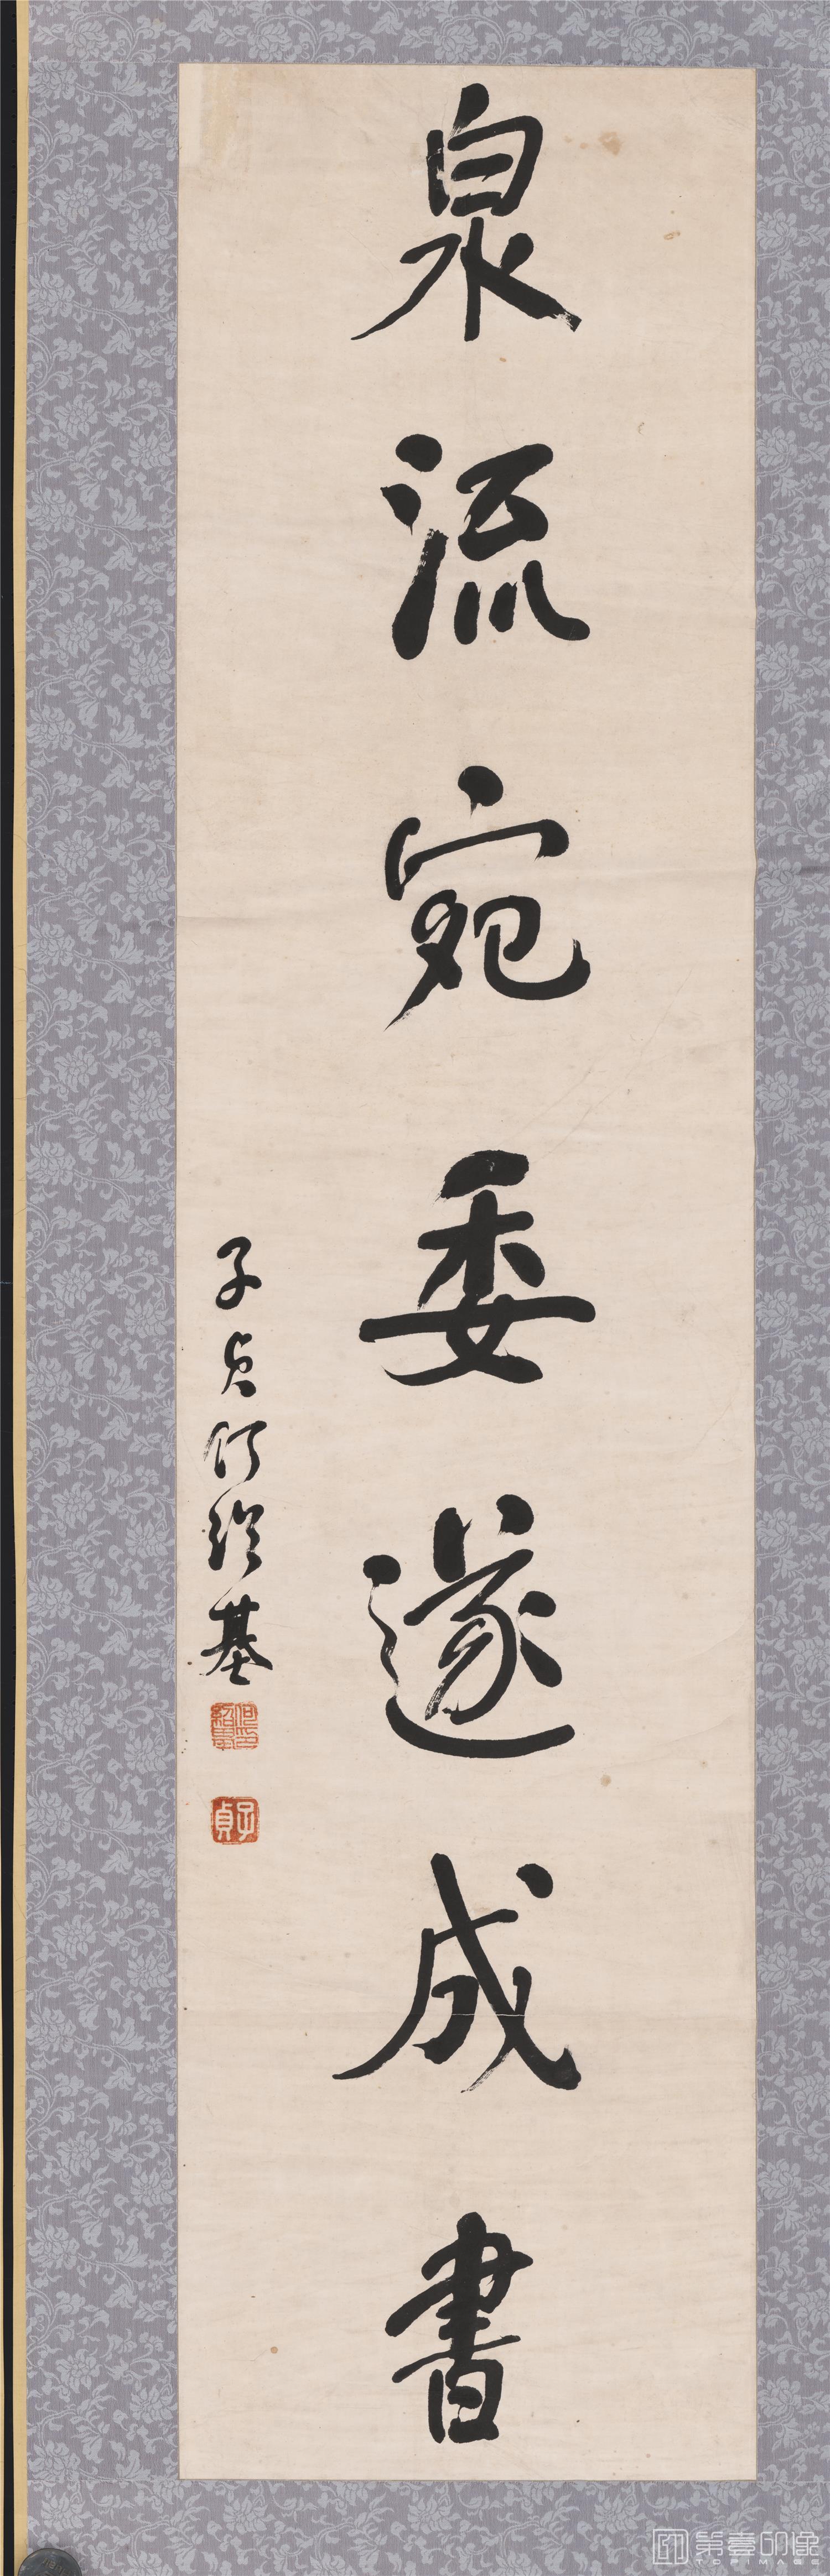 泉流宛委遂成書
子貞何紹基
何紹基印
子貞
第壹印像
TOP IMAGE